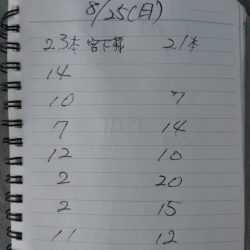 8/25(月)
23本 宮下様 21本
14
10 7
7 14
12 10
2 20
2 15
11 12